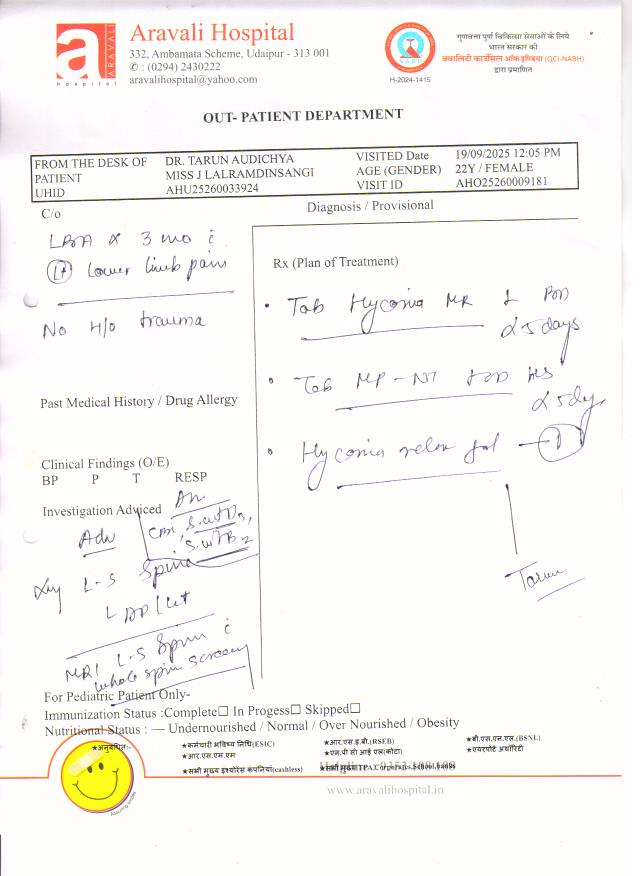 Aravali Hospital
332, Ambamata Scheme, Udaipur - 313 001
✆ : (0294) 2430222
aravalihospital@yahoo.com
a ARAVALI
hospital
NABH
H-2024-1415
गुणवत्ता पूर्ण चिकित्सा सेवाओं के लिये
भारत सरकार की
क्वालिटी काउंसिल ऑफ इण्डिया (QCI-NABH)
द्वारा प्रमाणित
OUT- PATIENT DEPARTMENT
FROM THE DESK OF DR. TARUN AUDICHYA VISITED Date 19/09/2025 12:05 PM
PATIENT MISS J LALRAMDINSANGI AGE (GENDER) 22Y / FEMALE
UHID AHU25260033924 VISIT ID AHO25260009181
C/o
Diagnosis / Provisional
3 mo
Lower limb pain
No H/o trauma
Past Medical History / Drug Allergy
Clinical Findings (O/E)
BP P T RESP
Investigation Adviced
Adv
L-S Spine
MRI L-S Spine
whole spin screen
Rx (Plan of Treatment)
• Tab MR
x 5 days
• Tab HS
x 5 days
• gel
Tarun
For Pediatric Patient Only-
Immunization Status :Complete☐ In Progess☐ Skipped☐
Nutritional Status : — Undernourished / Normal / Over Nourished / Obesity
★अनुबंधित:- ★कर्मचारी भविष्य निधि(ESIC) ★आर.एस.इ.बी.(RSEB) ★बी.एस.एन.एल.(BSNL)
★आर.एस.एम.एम ★एन.पी सी आई एल(कोटा) ★एयरपोर्ट अथॉरिटी
★सभी मुख्य इंश्योरेंस कंपनियां(cashless) ★सभी मुख्य TPA,
Assuring smiles
www.aravalihospital.in